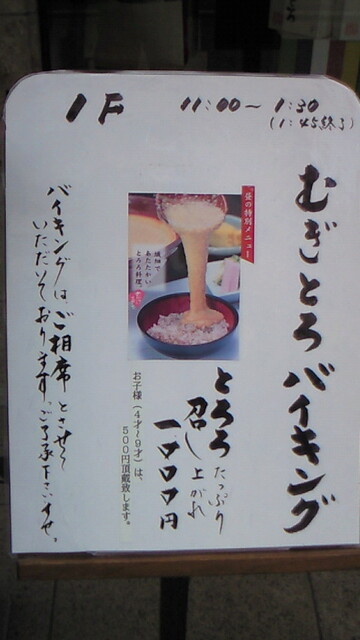 1F 11:00～1:30
(1:45終了)
むぎとろバイキング
昼の特別メニュー
繊細で
あたたかい、
とろろ料理。
とろろ たっぷり
召し上がれ
一〇〇〇円
お子様(4才～9才)は、
500円頂戴致します。
バイキングは、ご相席とさせて
いただいております。ご了承下さいませ。